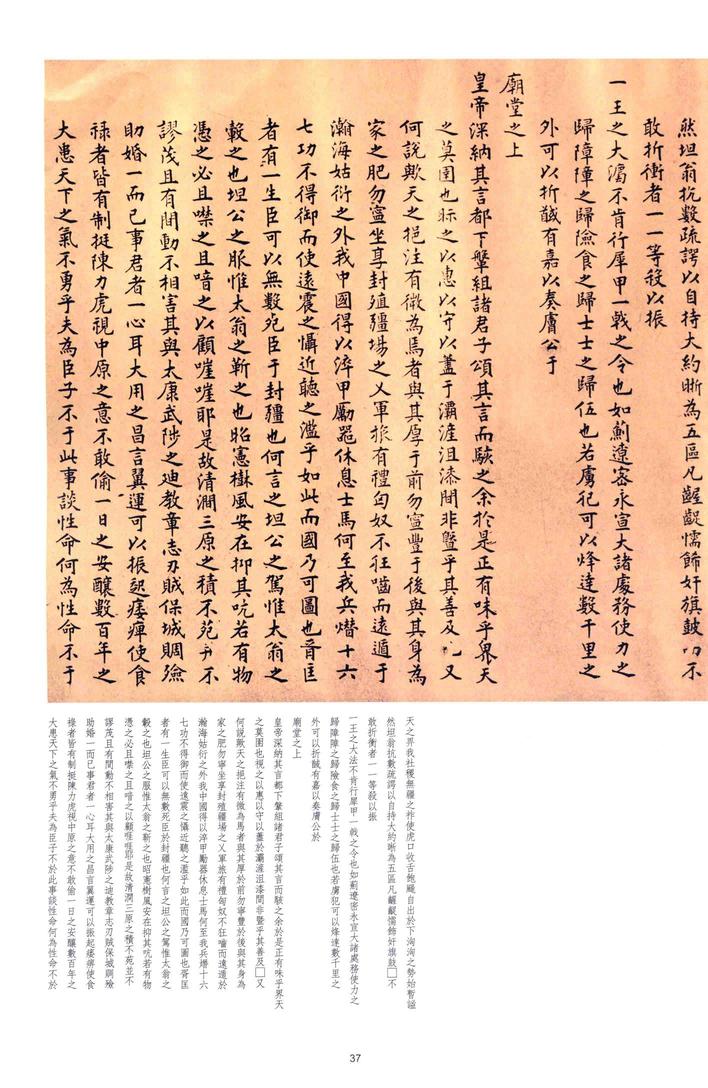 然坦翁抗數疏諤以自持大約晣為五區凡齷齪懦飾奸旗鼓不
敢折衝者一一等殺以振
一王之大灋不肯行犀甲一戟之令也如薊遼密永宣大諸處務使力之
歸障障之歸險食之歸士士之歸伍也若虜犯可以烽達數千里之
外可以折馘有嘉以奏膚公于
廟堂之上
皇帝深納其言都下鞶組諸君子頌其言而駭之余於是正有味乎界天
之莫圉也眎之以惠以守以藎于灞漄沮漆間非曁乎其善及又
何說歟天之挹注有微為馬者與其厚于前勿寧豊于後與其身為
家之肥勿寧坐耳封殖疆場之乂軍旅有禮匈奴不狂嚙而遠遁于
瀚海姑衍之外我中國得以淬甲勵器休息士馬何至我兵熸十六
七功不得御而使遠震之懾近聽之滥乎如此而國乃可圖也胥匡
者有一生臣可以無數死臣于封疆也何言之坦公之駕惟太翁之
轂之也坦公之服惟太翁之靳之也昭憲樹風安在抑其吭若有物
憑之必且噤之且喑之以顧嘊嘊耶是故清澗三原之積不苑并不
謬茂且有間動不相害其與太康武陟之廸教章志刃賊保城賙殮
助婚一而已事君者一心耳大用之昌言翼運可以振起痿痺使食
禄者皆有制挺陳力虎視中原之意不敢偷一日之安釀數百年之
大患天下之氣不勇乎夫為臣子不于此事談性命何為性命不于
天之界我社稷無疆之祚使虎口收舌鮑颺自出於下洶洶之勢始暫謐
然坦翁抗數疏諤以自持大約晣為五區凡齷齪懦飾奸旗鼓□不
敢折衝者一一等殺以振
一王之大法不肯行犀甲一戟之令也如薊遼密永宣大諸處務使力之
歸障障之歸險食之歸士士之歸伍也若虜犯可以烽達數千里之
外可以折馘有嘉以奏膚公於
廟堂之上
皇帝深納其言都下鞶組諸君子頌其言而駭之余於是正有味乎界天
之莫圉也視之以惠以守以藎於灞漄沮漆間非暨乎其善及□又
何說歟天之挹注有微為馬者與其厚於前勿寧豐於後與其身為
家之肥勿寧坐享封殖疆場之乂軍旅有禮匈奴不狂嚙而遠遁於
瀚海姑衍之外我中國得以淬甲勵器休息士馬何至我兵熸十六
七功不得御而使遠震之懾近聽之滥乎如此而國乃可圖也胥匡
者有一生臣可以無數死臣於封疆也何言之坦公之駕惟太翁之
轂之也坦公之服惟太翁之靳之也昭憲樹風安在抑其吭若有物
憑之必且噤之且喑之以顧嘊嘊耶是故清澗三原之積不苑並不
謬茂且有間動不相害其與太康武陟之迪教章志刃賊保城賙殮
助婚一而已事君者一心耳大用之昌言翼運可以振起痿痺使食
祿者皆有制挺陳力虎視中原之意不敢偷一日之安釀數百年之
大患天下之氣不勇乎夫為臣子不於此事談性命何為性命不於
37